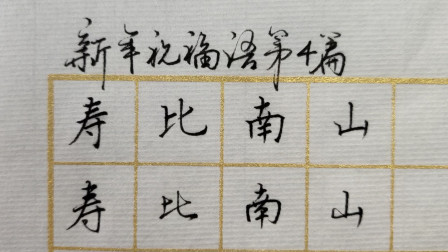 新年祝福语第4篇
寿比南山
寿比南山